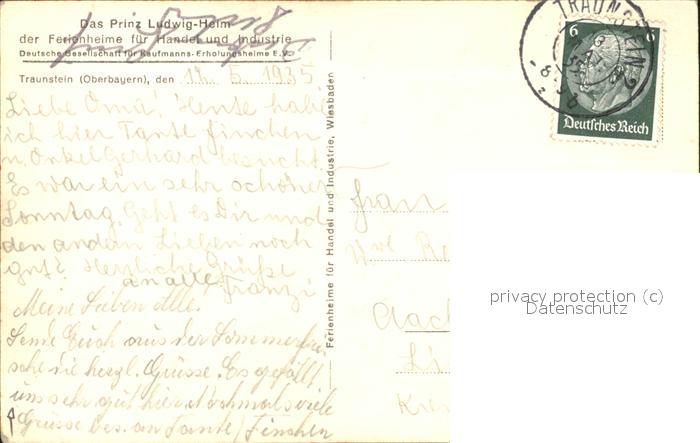 Das Prinz Ludwig-Heim
der Ferienheime für Handel und Industrie
Deutsche Gesellschaft für Kaufmanns-Erholungsheime E.V.
Traunstein (Oberbayern), den 12. 5. 1935
Liebe Oma, Heute habe
ich hier Tante Finchen
u. Onkel Gerhard besucht
Es war ein sehr schöner
Sonntag. Geht es Dir und
den andern Lieben noch
gut? Herzliche Grüße
an alle Franzi
Meine Lieben Alle.
Sende Euch aus der Sommerfri-
sche die herzl. Grüsse. Es gefällt
uns sehr gut hier. Nochmals viele
Grüsse bes. an Tante Finchen
Ferienheime für Handel und Industrie, Wiesbaden
TRAUNSTEIN 2
6 6
Deutsches Reich
Frau
Wwe
Aach
Kre
privacy protection (c)
Datenschutz